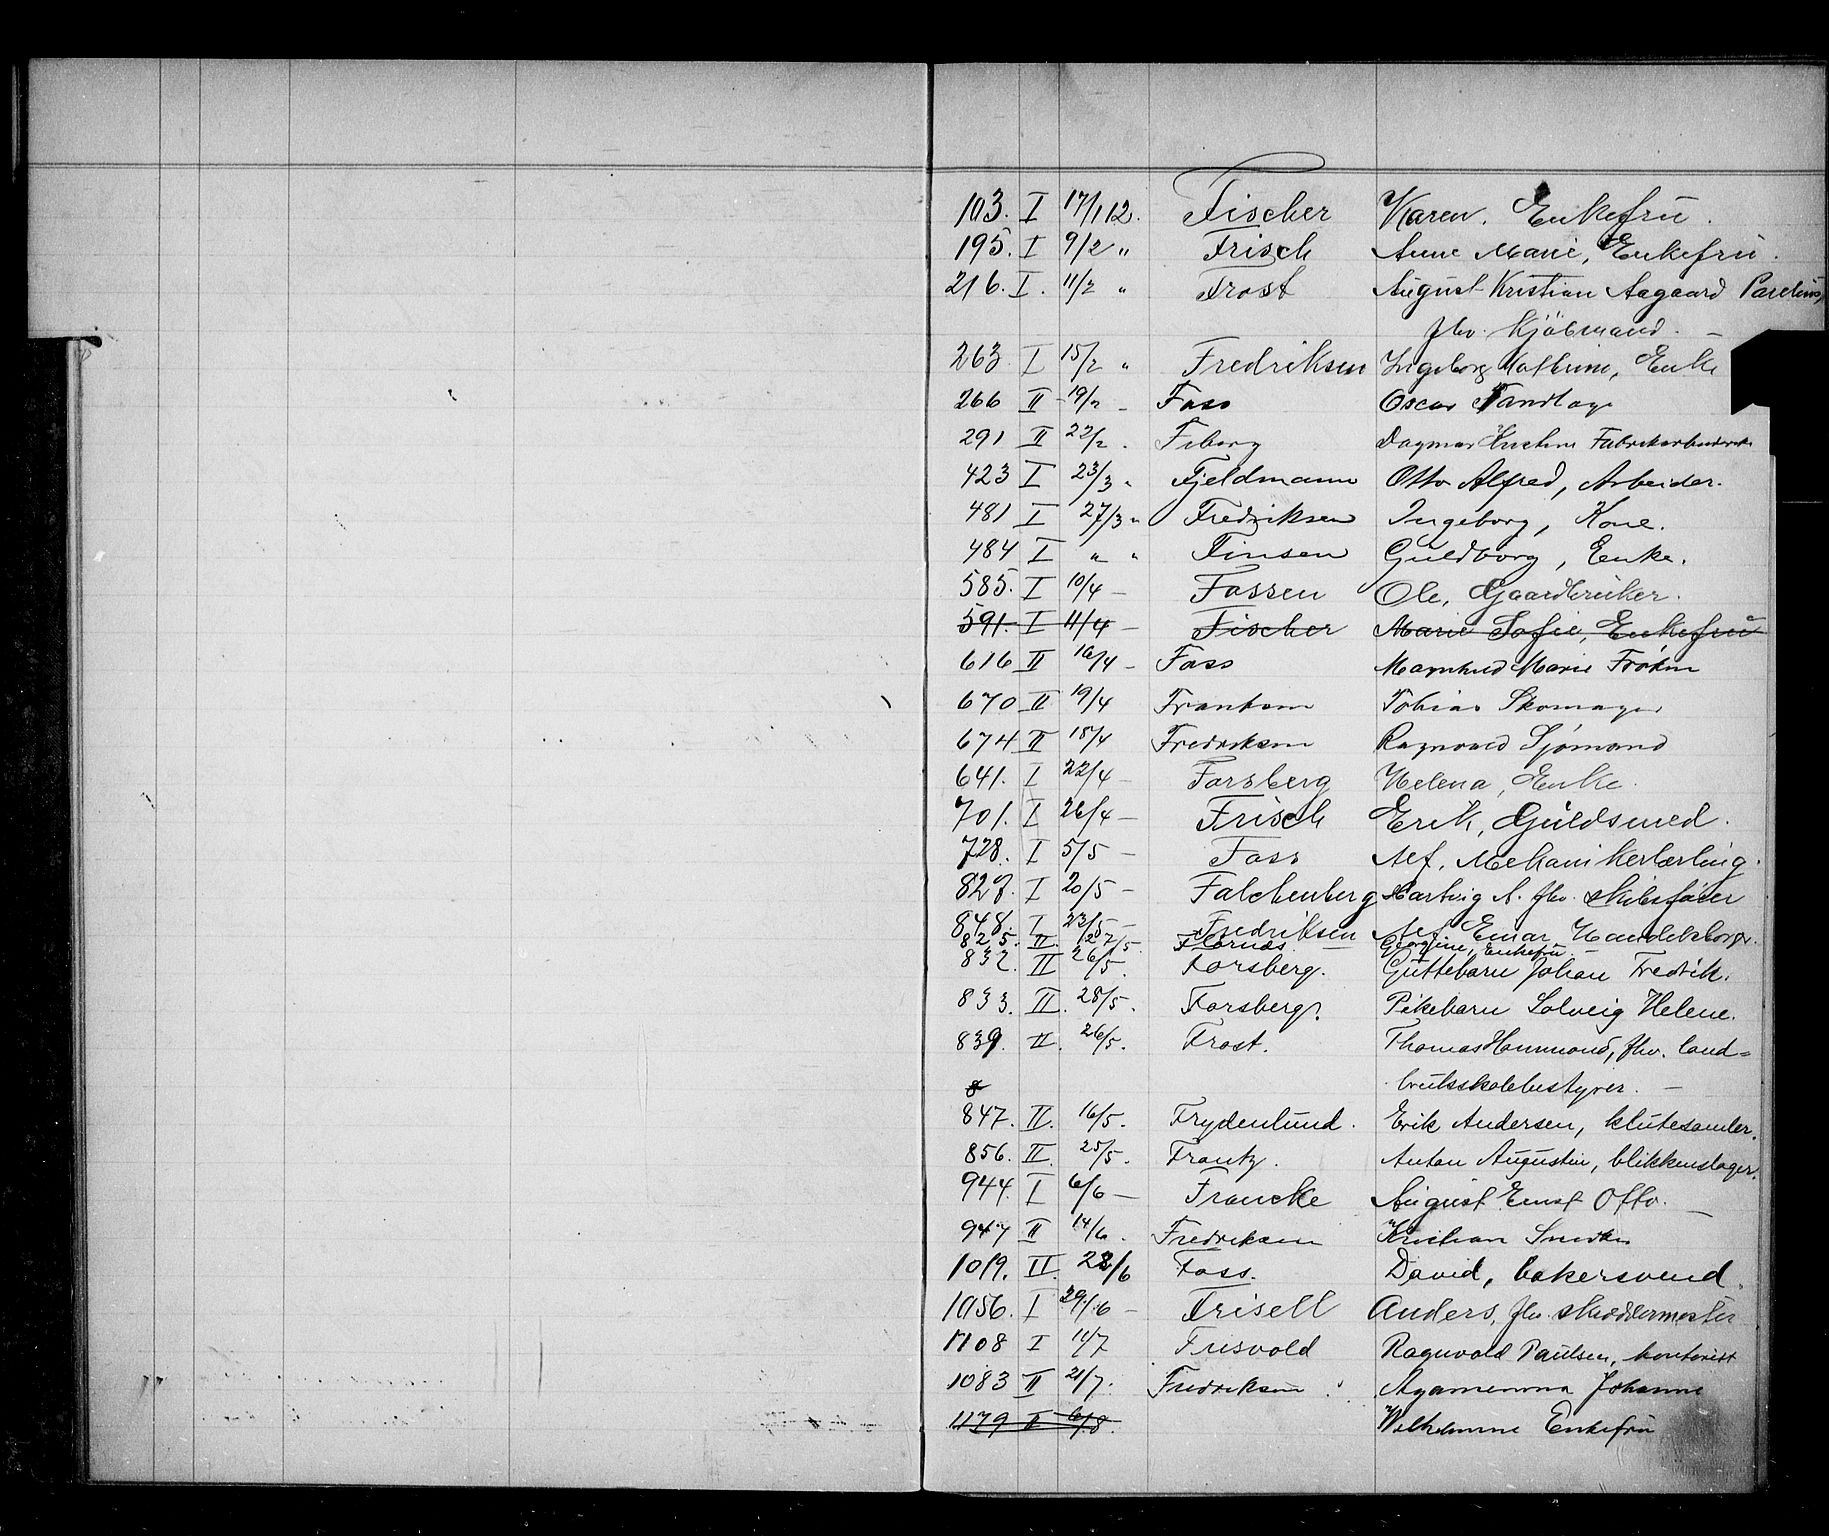 103. I 17/1 12. Fischer Karen. Enkefru.
195. I 9/2 " Frisch Anne Marie, Enkefru.
216. I. 11/2 " Frost August Kristian Aagaard Parelius,
fhv. Kjöbmand. —
263 I 15/2 " Fredriksen Ingeborg Kathrine, Enke
266 II 19/2 - Foss Oscar Tandlæge
291 II 22/2 . Feborg Dagmar Fabrikarbeiderske
423 I 23/3 " Fjeldmann Otto Alfred, Arbeider.
481 I 27/3 " Fredriksen Ingeborg, Kone.
484 I " " Finsen Guldborg, Enke.
585. I 10/4 — Fossen Ole, Gaardbruker.
591. I 11/4 — Fischer Marie Sofie, Enkefru
616 II 16/4 - Foss Magnhild Marie Frøken
670 II 19/4 Frantsen Tobias Skomager
674 II 18/4 Fredriksen Ragnvald Sjømand
641. I 22/4 — Forsberg Helena, Enke.
701. I 26/4 — Frisch Erik, Guldsmed.
728. I 5/5 — Foss Alf. Mekanikerlærling.
827. I 20/5 — Falchenberg Hartvig A. fhv. skibsfører
848. I 23/5 — Fredriksen Alf Einar Handelsborger.
825. II. 27/5. Flornes — Georgine, Enkefru. —
832. II 26/5. Forsberg. Guttebarn Johan Fredrik.
833. II. 28/5. Forsberg. Pikebarn Solveig Helene.
839. II. 26/5. Frost. Thomas Hammond, fhv. land=
8 bruksskolebestyrer. —
847. II. 16/5. Frydenlund. Erik Andersen, klutesamler.
856. II. 25/5. Frantz. Anton Augustin, blikkenslager.
944. I 6/6 — Francke August Ernst Otto. —
947 II 14/6 . Fredriksen Kristian Snedker
1019. II. 22/6 Foss. David, bakersvend.
1056. I 29/6 — Frisell Anders, fhv. skræddermester
1108 I 14/7 Frisvold Ragnvald Paulsen, kontorist
1083 II 21/7. Fredriksen . Agamemna Johanne
1179 II 6/8. Wilhelmine Enkefru